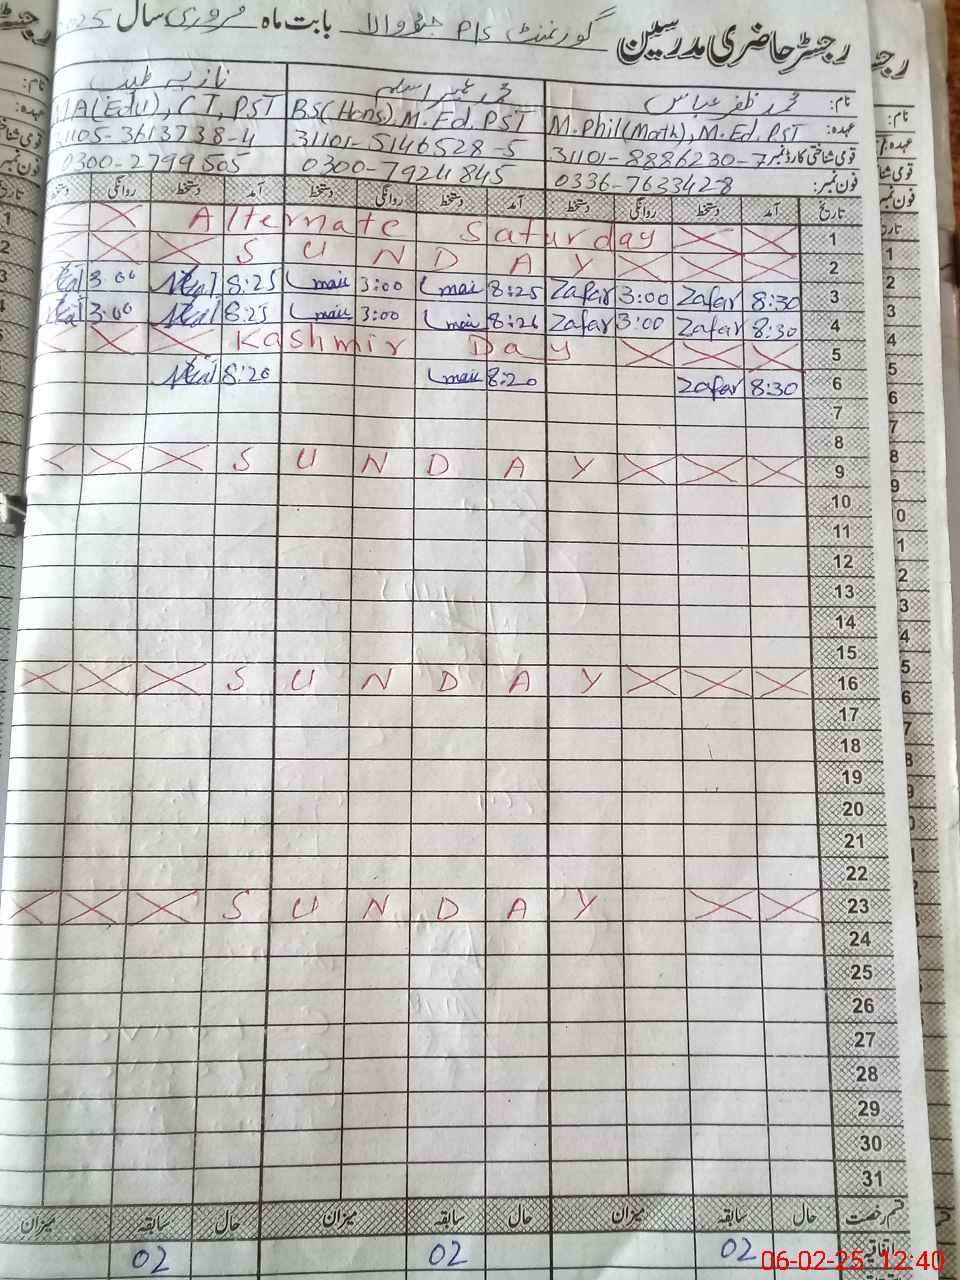 رجسٹر حاضری مدرسین گورنمنٹ P/s بابت ماہ فروری سال 2025
نام: محمد ظفر عباس
نازیہ
عہدہ: M.Phil(Math), M.Ed. PST
BS(Hons), M.Ed. PST
(Edu), C.T, PST
قومی شناختی کارڈ نمبر 31101-8886230-7
31101-5146528-5
1105-3613738-4
فون نمبر: 0336-7633428
0300-7924845
0300-2799505
تاریخ آمد دستخط روانگی دستخط آمد دستخط روانگی دستخط آمد دستخط روانگی دستخط
1 Alternate Saturday
2 SUNDAY
3 8:30 Zafar 3:00 Zafar 8:25 3:00 8:25 3:00
4 8:30 Zafar 3:00 Zafar 8:26 3:00 8:25 3:00
5 Kashmir Day
6 8:30 Zafar 8:20 8:20
7
8
9 SUNDAY
10
11
12
13
14
15
16 SUNDAY
17
18
19
20
21
22
23 SUNDAY
24
25
26
27
28
29
30
31
قسم رخصت حال سابقہ میزان حال سابقہ میزان حال سابقہ میزان
اتفاقیہ 02 02 02
06-02-25 12:40